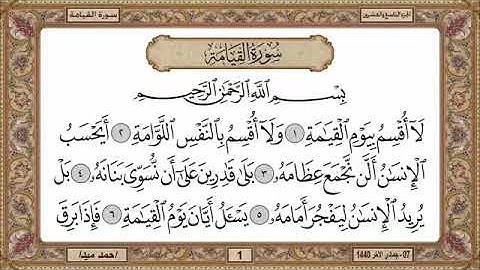 الجزء التاسع والعشرون
سورة القيامة
سُورَةُ القِيَامَة
بِسْمِ اللَّهِ الرَّحْمَٰنِ الرَّحِيمِ
لَا أُقْسِمُ بِيَوْمِ الْقِيَٰمَةِ ١ وَلَا أُقْسِمُ بِالنَّفْسِ اللَّوَّامَةِ ٢ أَيَحْسَبُ
الْإِنسَٰنُ أَلَّن نَّجْمَعَ عِظَامَهُۥ ٣ بَلَىٰ قَٰدِرِينَ عَلَىٰٓ أَن نُّسَوِّيَ بَنَانَهُۥ ٤ بَلْ
يُرِيدُ الْإِنسَٰنُ لِيَفْجُرَ أَمَامَهُۥ ٥ يَسْـَٔلُ أَيَّانَ يَوْمُ الْقِيَٰمَةِ ٦ فَإِذَا بَرِقَ
07- جمادى الآخر 1440
1
/احمد عيد/